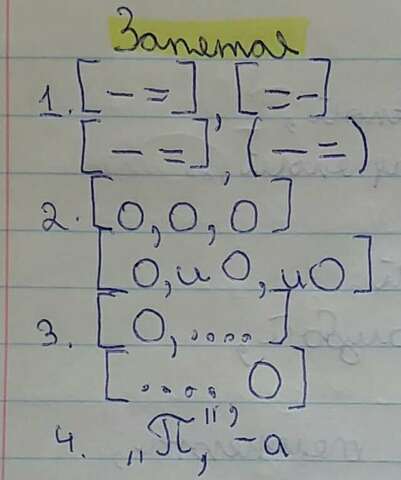 Запетая
1. [— =], [= –]
[— =], (— =)
2. [О, О, О]
[О, и О, и О]
3. [О, ....]
[...., О]
4. „П“, – а